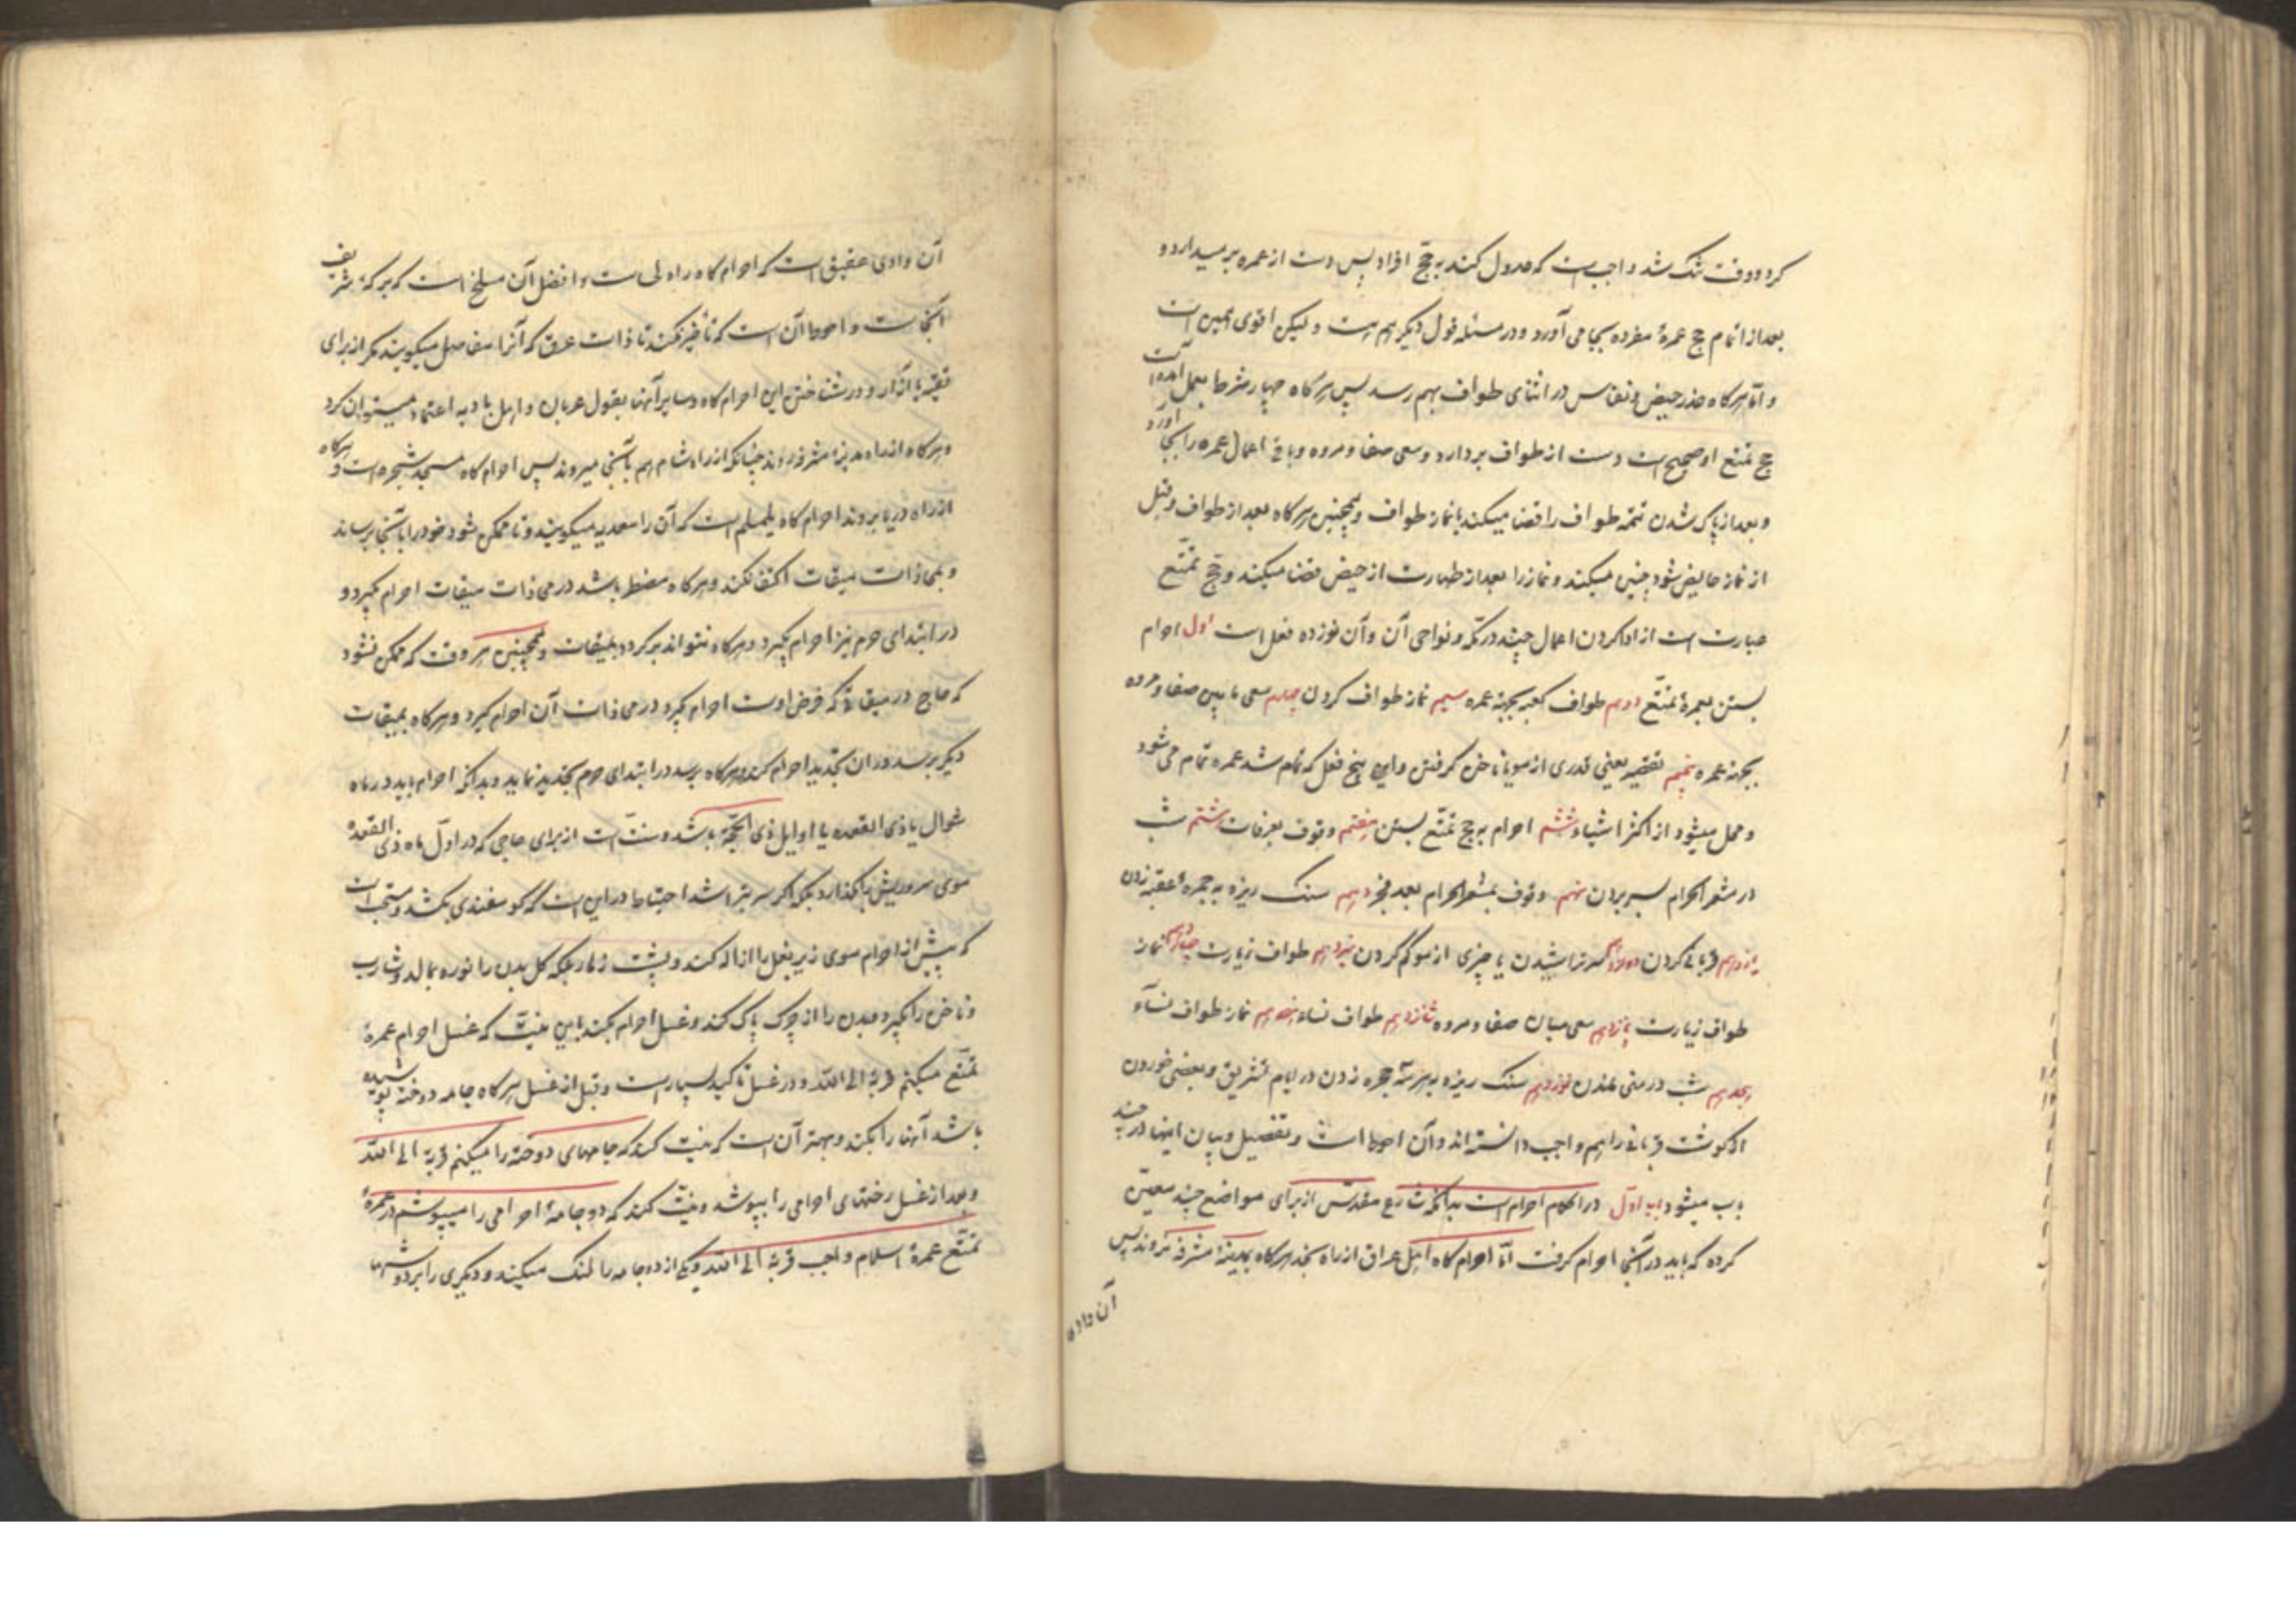 کرد و وقت تنگ شد واجب است که عدول کند به حجّ افراد پس دست از عمره برمیدارد و
بعد از اتمام حج عمرهٔ مفرده بجا می آورد و در مسئله قول دیگر هم هست و لیکن اقوی همین است
و امّا هرگاه عذر حیض و نفاس در اثنای طواف بهم رسد پس هرگاه چهار شوط بعمل آمده است
حج تمتع او صحیح است دست از طواف بردارد و سعی صفا و مروه و باقی اعمال عمره را بجا آورد
و بعد از پاک شدن تتمه طواف را قضا میکند با نماز طواف و همچنین هرگاه بعد از طواف و قبل
از نماز حایض شود چنین میکند و نماز را بعد از طهارت از حیض قضا میکند و حجّ تمتّع
عبارت است از ادا کردن اعمال چند در مکّه و نواحی آن و آن نوزده فعل است اول احرام
بستن بعمرهٔ تمتّع دویم طواف کعبه بجهة عمره سیم نماز طواف کردن چهارم سعی ما بین صفا و مروه
بجهة عمره پنجم تقصیر یعنی قدری از مو یا ناخن گرفتن و این پنج فعل که تمام شد عمره تمام می شود
و محل میشود از اکثر اشیاء ششم احرام به حج تمتّع بستن هفتم وقوف بعرفات هشتم شب
در مشعر الحرام بسر بردن نهم وقوف بمشعر الحرام بعد فجر دهم سنک ریزه به جمرهٔ عقبه زدن
یازدهم قربانی کردن دوازدهم سر تراشیدن یا چیزی از مو کم کردن سیزدهم طواف زیارت چهاردهم نماز
طواف زیارت پانزدهم سعی میان صفا و مروه شانزدهم طواف نساء هفدهم نماز طواف نسآء
هیجدهم شب در منی بودن نوزدهم سنک ریزه به هر سه جمره زدن در ایام تشریق و بعضی خوردن
از گوشت قربانی را هم واجب دانسته اند و آن احوط است و تفصیل و بیان اینها در چند
باب میشود باب اوّل در احکام احرام است بدانکه شارع مقدّس از برای مواضع چند معین
کرده که باید در آنجا احرام گرفت امّا احرام گاه اهل عراق از راه نجد هرگاه بمدینهٔ مشرفه نروند پس
آن وادی
آن وادی عقیق است که احرام گاه راه است و افضل آن مسلخ است که برکهٔ شریف
آنجاست و احوط آن است که تأخیر نکند تا ذات عرق که آنرا میگویند مگر از برای
تقیّه یا آزار و در شناختن این احرام گاه و سایر آنها بقول عربان و اهل بادیه اعتماد میتوان کرد
و هرگاه از راه مدینهٔ مشرفه روند چنانکه از راه شام هم بآنجا میروند پس احرام گاه مسجد شجره است و هرگاه
از راه دریا بروند احرام گاه یلملم است که آن را سعدیه میگویند و تا ممکن شود خود را بآنجا برساند
و بمحاذات میقات اکتفا نکند و هرگاه مضطر باشد در محاذات میقات احرام گیرد و
در ابتدای حرم نیز احرام گیرد و هرگاه نتواند برگردد بمیقات و همچنین هر وقت که ممکن نشود
که حاج در میقاتی که فرض اوست احرام گیرد در محاذات آن احرام گیرد و هرگاه بمیقات
دیگر برسد در آن تجدید احرام کند و هرگاه برسد در ابتدای حرم تجدید نماید و بدانکه احرام باید در ماه
شوال یا ذی القعده یا اوایل ذی الحجّه باشد و سنّت است از برای حاجی که در اوّل ماه ذی القعده
موی سر و ریش بگذارد بلکه اگر سر بتراشد احتیاط در این است که گوسفندی بکشد و مستحب است
که پیش از احرام موی زیر بغل را ازاله کند و پشت زهار بلکه کل بدن را نوره بمالد و شارب
و ناخن را بگیرد و بدن را از چرک پاک کند و غسل احرام بکند باین نیّت که غسل احرام عمرهٔ
تمتّع میکنم قربة الی الله و در غسل تاکید بسیار است و قبل از غسل هرگاه جامه دوخته پوشیده
باشد آنها را بکند و بهتر آن است که نیّت کند که جامهای دوخته را میکنم قربة الی الله
و بعد از غسل رختهای احرامی را بپوشد و نیّت کند که دو جامهٔ احرامی را میپوشم در عمرهٔ
تمتّع عمرهٔ اسلام واجب قربة الی الله و یکی از دو جامه را لنک میکند و دیگری را بر دوشها